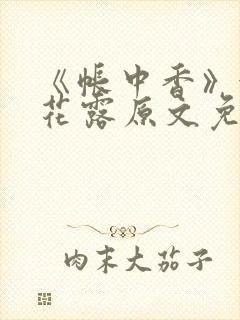 《帐中香》
花露原文免
肉末大茄子